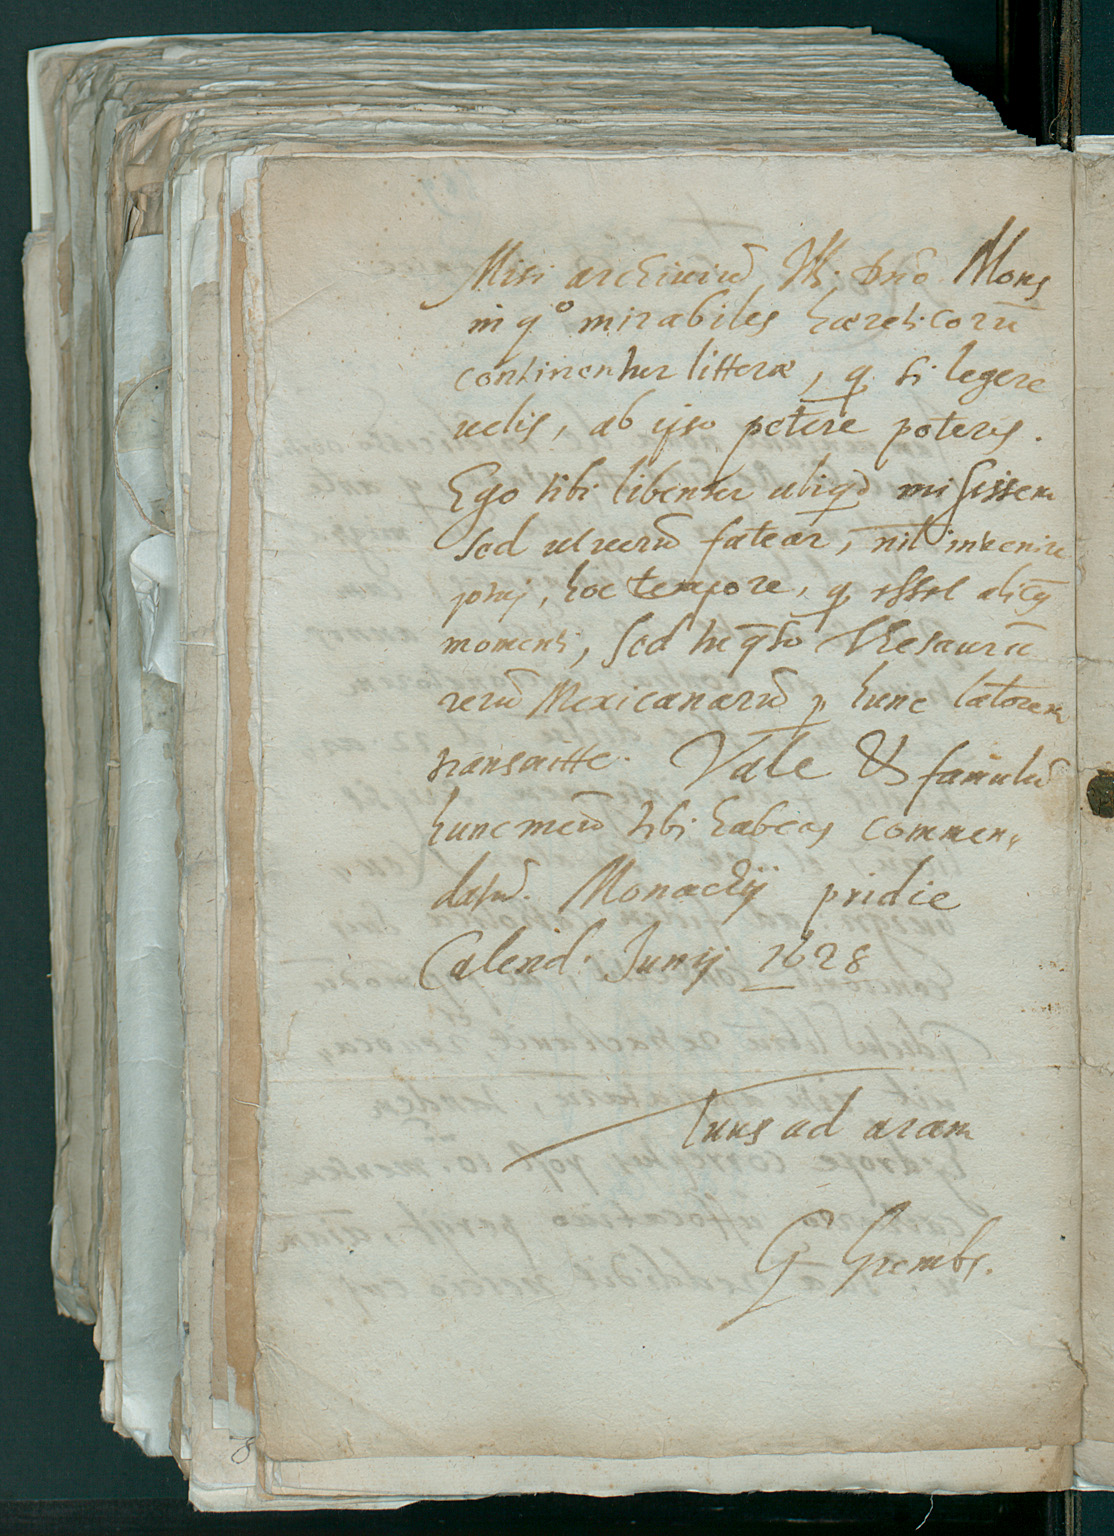 Misi archiuiū Ill. Dno Mons
in q° mirabiles hæreticorū
continentur litteræ, q si legere
uelis, ab ipso petere poteris.
Ego tibi libenter aliqd misissem
sed ut uerū fatear, nil inuenire
potui, hoc tempore, q esset alic9
momenti, sed tu qso Thesaurū
rerū Mexicanarū p hunc latorem
transmitte. Vale & famulū
hunc meū tibi habeas commen,
datū. Monachij pridie
Calend. Junij 1628
Tuus ad aram
G Grembs.
8